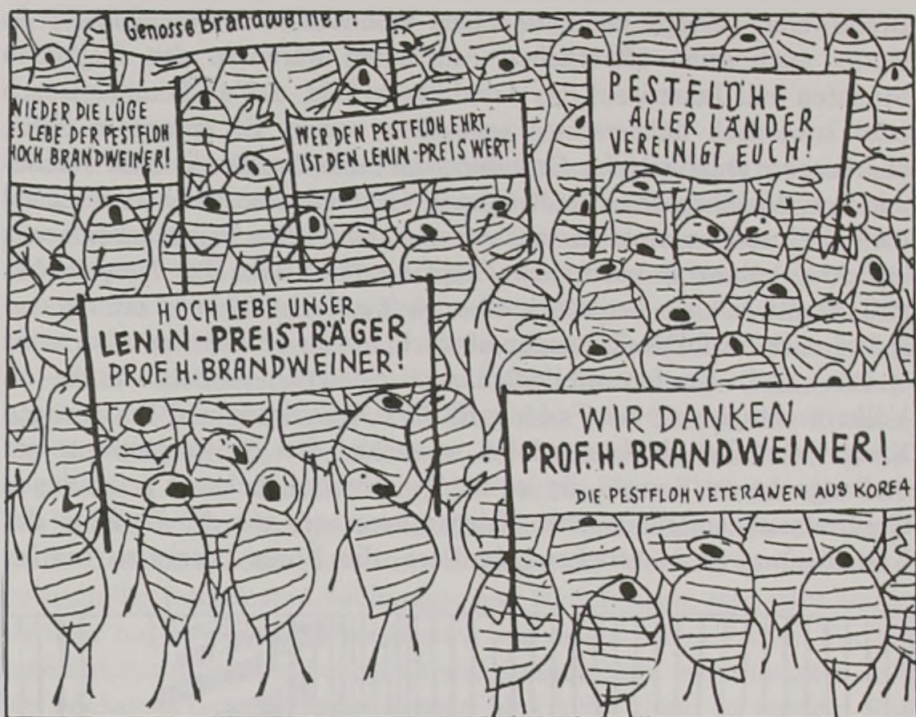 Genosse Brandweiner!
NIEDER DIE LÜGE
ES LEBE DER PESTFLOH
HOCH BRANDWEINER!
WER DEN PESTFLOH EHRT,
IST DEN LENIN-PREIS WERT!
PESTFLÖHE
ALLER LÄNDER
VEREINIGT EUCH!
HOCH LEBE UNSER
LENIN-PREISTRÄGER
PROF. H. BRANDWEINER!
WIR DANKEN
PROF. H. BRANDWEINER!
DIE PESTFLOHVETERANEN AUS KOREA